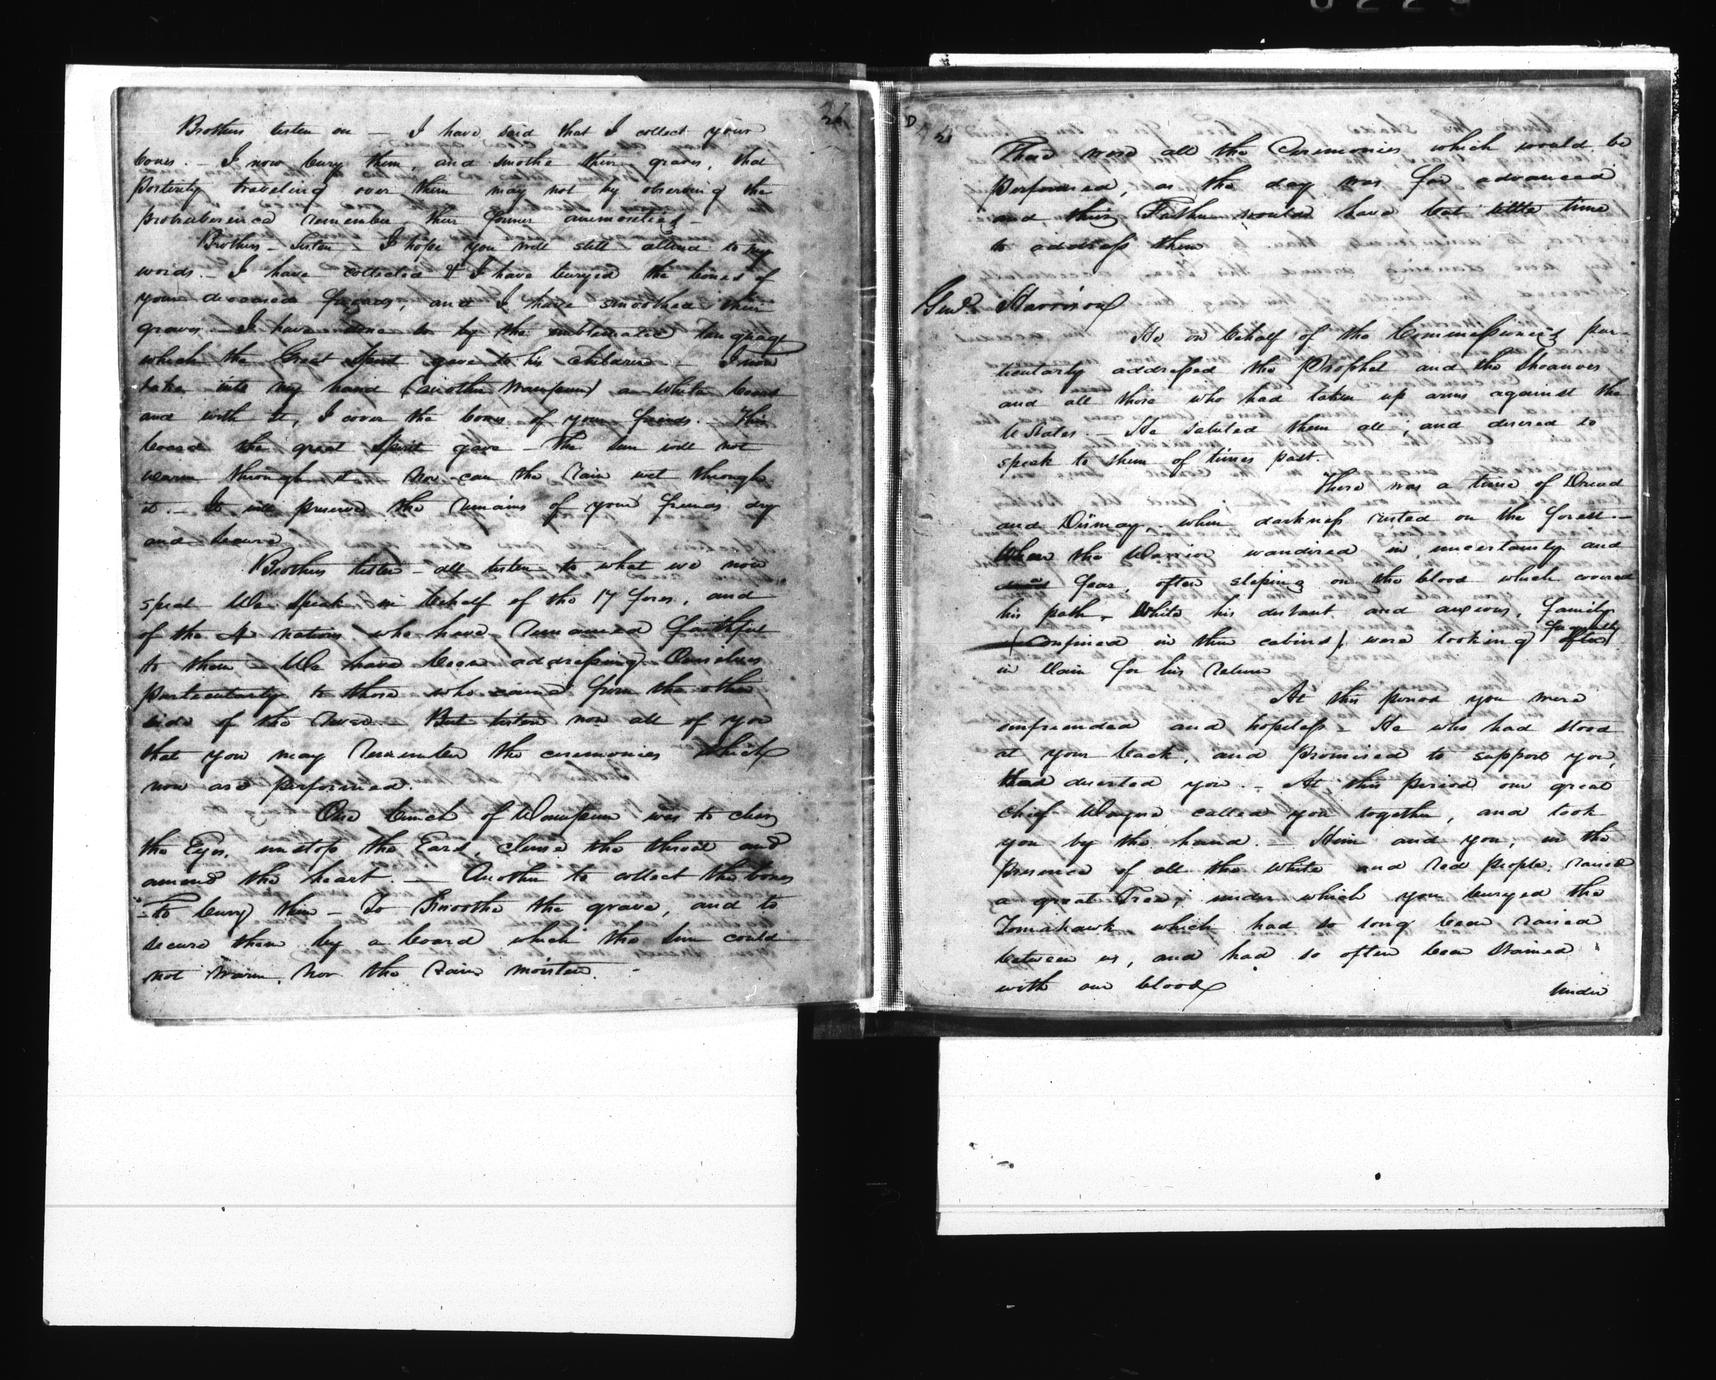 Brothers listen on — I have said that I collect your
bones. — I now bury them, and smothe their graves, that
posterity traveling over them may not by observing the
remember their former ammoseties —
Brothers — Listen — I hope you will still attend to my
words. — I have collected & I have buryed the bones of
your deceased friends, and I have smoothed their
graves — I have done so by the emblematic language
which the Great Spirit gave to his children — I now
take into my hand (another Wampum) a White board
and with it, I cover the bones of your friends. — This
board the great Spirit gave — The Sun will not
warm through it Nor can the Rain wet through
it. — It will preserve the remains of your friends dry
and secure
Brothers listen — all listen to what we now
speak We Speak in behalf of the 17 fires, and
of the 4 nations who have remained faithful
to them We have been addressing Ourselves
particularly to those who came from the other
side of the River — But listen now all of you
that you may remember the ceremonies which
now are performed.
One bunch of Wampum was to clear
the Eyes, unstop the Ears, clense the throat and
amend the heart. — Another to collect the bones
— To bury them — To Smoothe the grave, and to
secure them by a board which the Sun could
not warm, Nor the Rain moisten. —
21
These were all the Ceremonies which would be
performed, as the day was far advanced
and their Father would have but little time
to address them
Genl. Harrison
He on behalf of the Commissioners par-
ticularly addressed the Prophet and the Shawnes
and all those who had taken up arms against the
U States. — He saluted them all, and desired to
speak to them of times past.
There was a time of Dread
and Dismay, when darkness rested on the forest —
When the Warrior wandered in uncertainty and
fear, often sleping on the blood which covered
his path — While his distant and anxious family
(Confined in their cabins) were looking frequently often
in Vain for his return
At this period you were
unfriended and hopeless — He who had stood
at your back, and promised to support you,
had deserted you. — At this period our great
Chief Wayne called you together, and took
you by the hand. — Him and you, in the
presence of all the White and red people, raised
a great Tree; under which you buryed the
Tomahawk which had so long been raised
between us, and had so often been stained
with our blood
Under